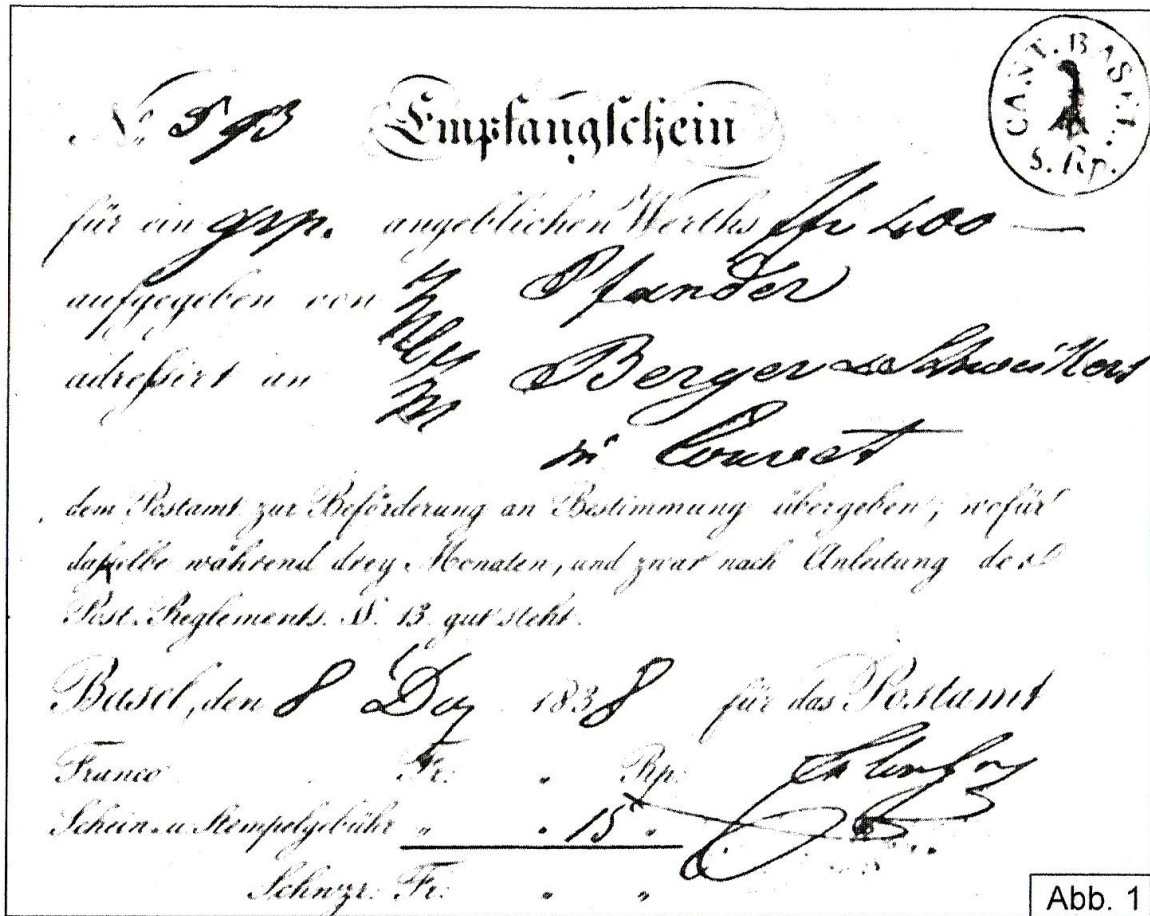 CANT. BASEL.
5. Rp.
No. 593 Empfangschein
für ein grp. angeblichen Werths ffr 400 —
aufgegeben von Pfander
adressirt an Berger &
in Couvet
dem Postamt zur Beförderung an Bestimmung übergeben, wofür
dasselbe während drey Monaten, und zwar nach Anleitung des
Post-Reglements. §. 13. gut steht.
Basel, den 8 Dez 1838 für das Postamt
Franco Fr. " Rp.
Schein- u. Stempelgebühr " " 15 "
Schwzr. Fr. " "
Abb. 1